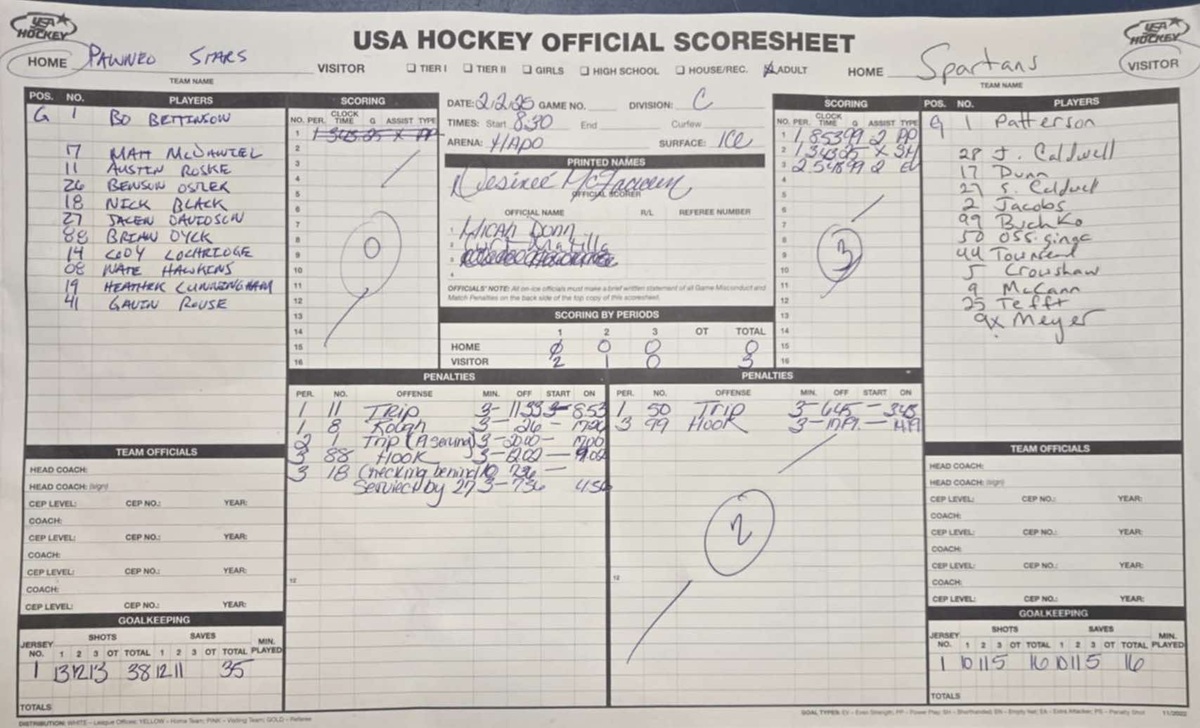 USA HOCKEY
USA HOCKEY OFFICIAL SCORESHEET
USA HOCKEY
HOME PAWNED STARS
TEAM NAME
VISITOR ☐ TIER I ☐ TIER II ☐ GIRLS ☐ HIGH SCHOOL ☐ HOUSE/REC. ☒ ADULT HOME
Spartans
TEAM NAME
VISITOR
POS. NO. PLAYERS
G 1 BO BETTINSON
17 MATT McDANIEL
11 AUSTIN ROSKE
26 BENSON OSTER
18 NICK BLACK
27 JALEN DAVIDSON
88 BRIAN DYCK
14 CODY LOCHRIDGE
08 NATE HAWKINS
19 HEATHER CUNNINGHAM
41 GAVIN ROUSE
SCORING
NO. PER. CLOCK TIME G ASSIST TYPE
1 1 343 25 X PP
2
3
4
5
6
7
8
9
10
11
12
13
14
15
16
0
DATE: 2/2/25 GAME NO. DIVISION: C
TIMES: Start 8:30 End Curfew
ARENA: YAPO SURFACE: ICE
PRINTED NAMES
Desireé
OFFICIAL SCORER
OFFICIAL NAME R/L REFEREE NUMBER
1 Micah Donn
2
3
4
OFFICIALS' NOTE: All on-ice officials must make a brief written statement of all Game Misconduct and
Match Penalties on the back side of the top copy of this scoresheet.
SCORING BY PERIODS
1 2 3 OT TOTAL
HOME 0 0 0 0
VISITOR 2 1 0 3
SCORING
NO. PER. CLOCK TIME G ASSIST TYPE
1 1 853 99 2 PP
2 1 343 25 X SH
3 2 548 99 2 EV
4
5
6
7
8
9
10
11
12
13
14
15
16
3
POS. NO. PLAYERS
G 1 Patterson
28 J. Caldwell
17 Dunn
27 S. Caldwell
2 Jacobs
99 Buchko
50 Ossiginac
44 Townend
5 Crowshaw
9 McCann
25 Tefft
9x Meyer
PENALTIES
PER. NO. OFFENSE MIN. OFF START ON
1 11 TRIP 3- 1153 - 853
1 8 Rough 3- 26 - 1726
2 1 Trip (A serving) 3- 2000 - 1700
3 88 HOOK 3- 1202 - 902
3 18 Checking behind 10 736 -
Served by 27 3- 736 436
12
PENALTIES
PER. NO. OFFENSE MIN. OFF START ON
1 50 TRIP 3- 645 - 345
3 99 HOOK 3-
2
12
TEAM OFFICIALS
HEAD COACH:
HEAD COACH: (sign)
CEP LEVEL: CEP NO.: YEAR:
COACH:
CEP LEVEL: CEP NO.: YEAR:
COACH:
CEP LEVEL: CEP NO.: YEAR:
COACH:
CEP LEVEL: CEP NO.: YEAR:
TEAM OFFICIALS
HEAD COACH:
HEAD COACH: (sign)
CEP LEVEL: CEP NO.: YEAR:
COACH:
CEP LEVEL: CEP NO.: YEAR:
COACH:
CEP LEVEL: CEP NO.: YEAR:
COACH:
CEP LEVEL: CEP NO.: YEAR:
GOALKEEPING
JERSEY NO. SHOTS 1 2 3 OT TOTAL SAVES 1 2 3 OT TOTAL MIN. PLAYED
1 13 12 13 38 12 11 35
TOTALS
GOALKEEPING
JERSEY NO. SHOTS 1 2 3 OT TOTAL SAVES 1 2 3 OT TOTAL MIN. PLAYED
1 10 1 5 16 10 1 5 16
TOTALS
DISTRIBUTION: WHITE - League Offices; YELLOW - Home Team; PINK - Visiting Team; GOLD - Referee
GOAL TYPES: EV - Even Strength; PP - Power Play; SH - Shorthanded; EN - Empty Net; EA - Extra Attacker; PS - Penalty Shot